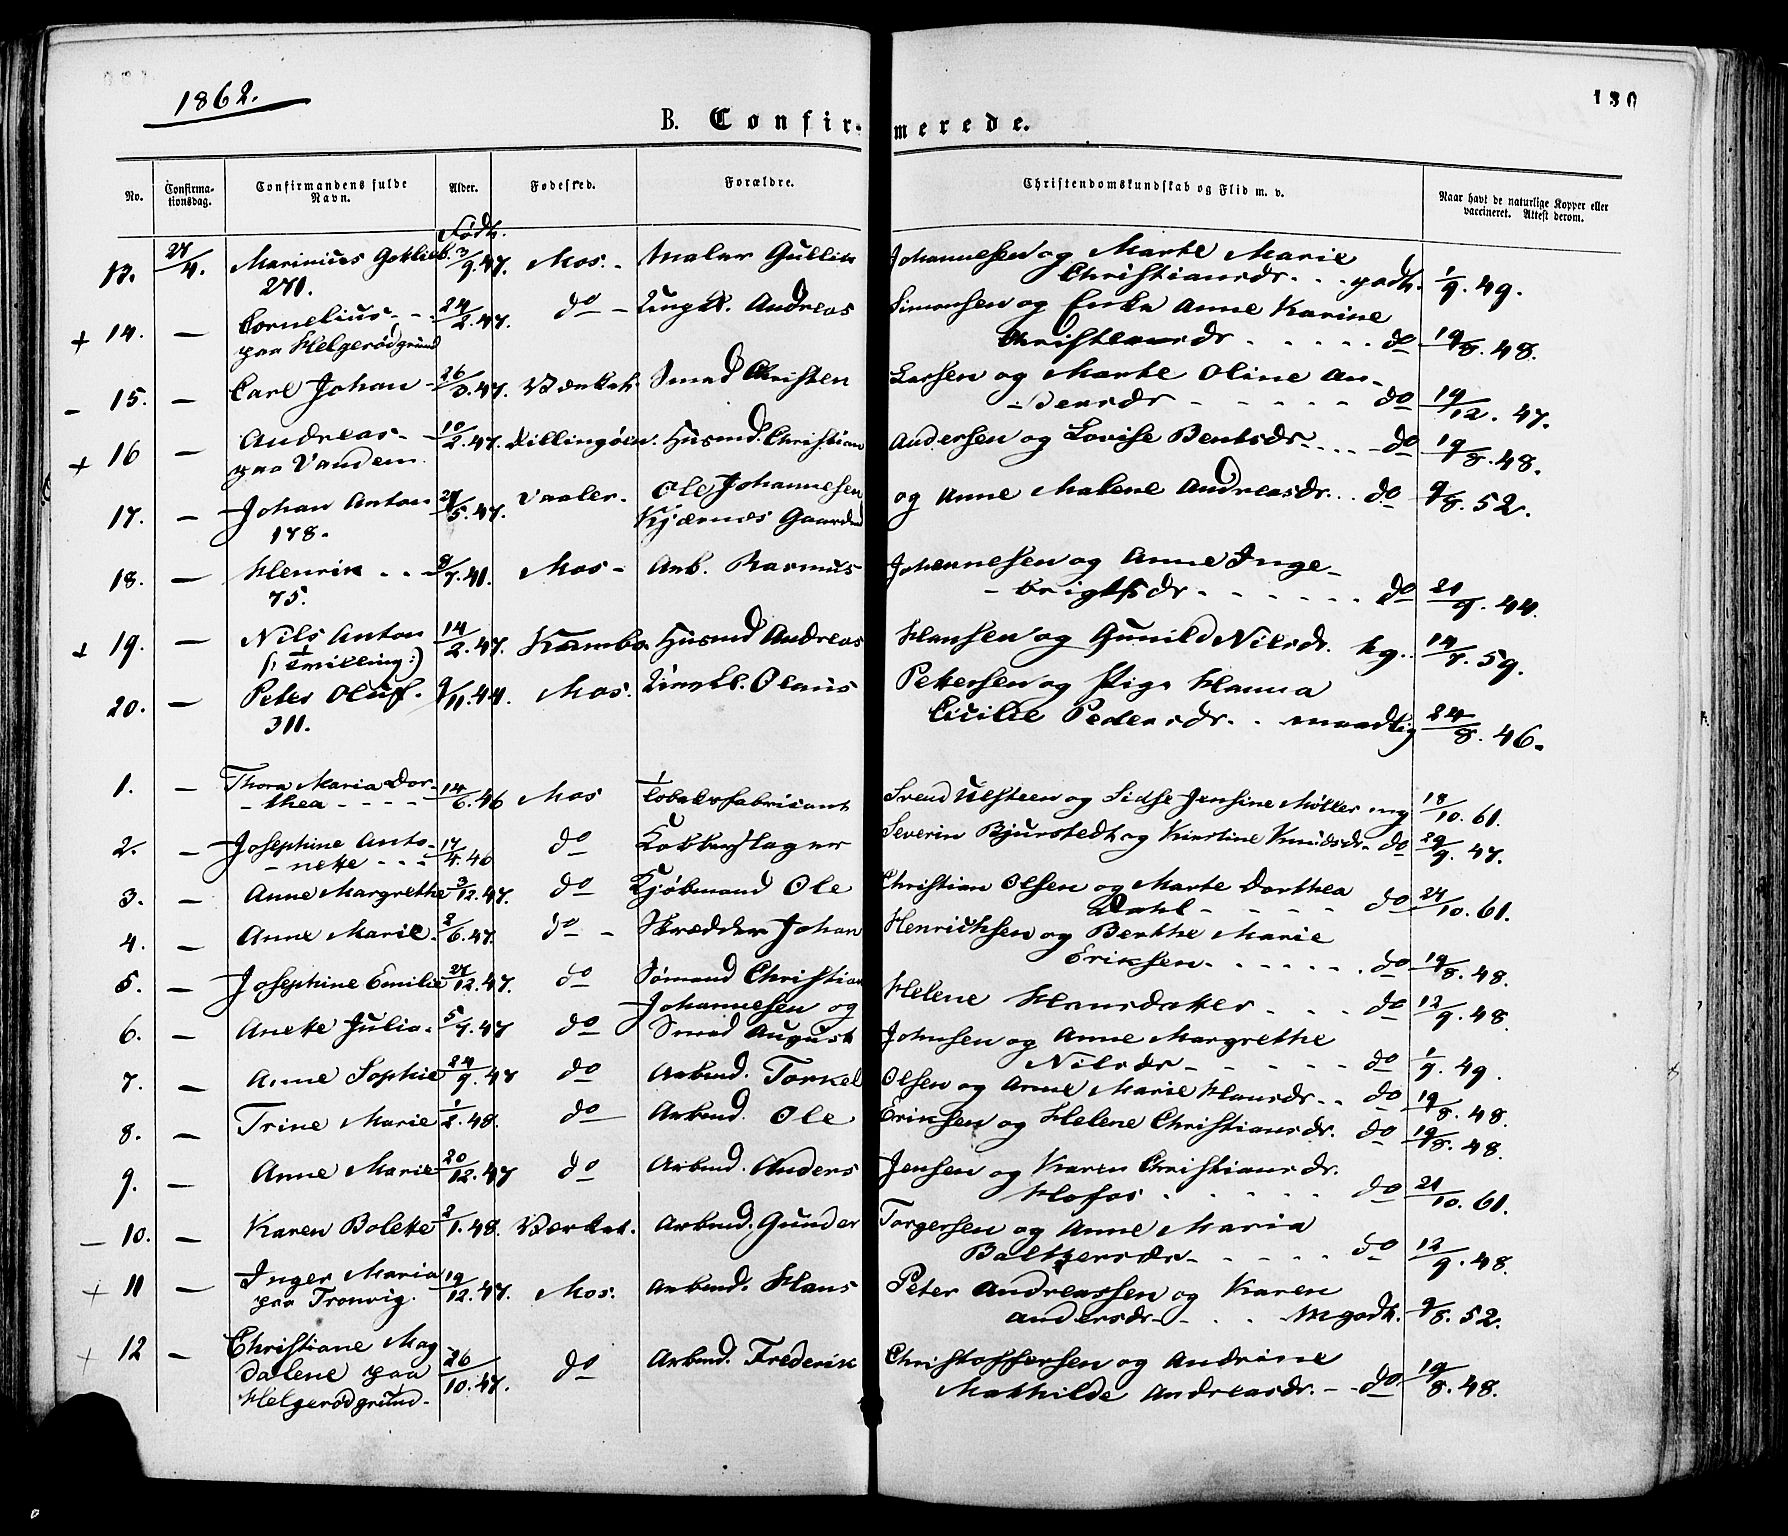 1862.
130
B. Confirmerede.
No. Confirmationsdag. Confirmandens fulde Navn. Alder. Fødested. Forældre. Christendomskundskab og Flid m. v. Naar havt de naturlige Kopper eller vaccineret. Attest derom.
Født.
13. 27/4. Marinius Gotlieb. 3/9.47. Mos. Malar Gullik Johannesen og Marte Marie
271. Christiansdr. godt. 1/9.49.
+ 14. — Cornelius 24/2.47. do Andreas Simonsen og Enke Anne Karine
paa Helgerødgrund Christensdr. do 19/8.48.
- 15. — Carl Johan 26/3.47. Værket. Smed Christen Larsen og Marte Oline An-
dersdr do 19/12.47.
+ 16 — Andreas 10/2.47. Dillingøen. Husmd. Christian Andersen og Lovise Bentsdr. do 19/8.48.
paa Vandem.
17. — Johan Anton 21/5.47. Vaaler. Ole Johannesen og Anne Malene Andreasdr. do 9/8.52.
178. Kjærnes Gaarden
18. — Henrik 8/7.41. Mos Arb. Rasmus Johannesen og Anne Inge-
75. brigtsdr. do 21/9.44.
+ 19. — Nils Anton 14/2.47. Kambo Husmd Andreas Hansen og Gunild Nilsdr. hg. 14/7.59.
(: Tvilling :)
20. — Peter Oluf. 9/11.44. Mos. Olaus Pettersen og Pige Hanna
311. Cicilie Pedersdr. maadlig 24/8.46.
1. — Thora Maria Dor-
thea 14/6.46 Mos Tobaksfabricant Svend Ulsteen og Sidse Jensine Møller mg 18/10.61.
2. — Josephine Anto-
nette 17/4.46 do Kobberslager Severin Bjurstedt og Kirstine Knudsdr. do 29/9.47.
3. — Anne Margrethe 3/12.47. do Kjøbmand Ole Christian Olsen og Marte Dorthea
Dahl do 24/10.61.
4. — Anne Marie. 3/6.47. do Skrædder Johan Henrichsen og Berthe Marie
Eriksen. do 19/8.48.
5. — Josephine Emilie 27/12.47. do Sømand Christian
Johannesen og Helene Hansdatter do 12/9.48.
6. — Anette Julia. 5/7.47 do Smed August Johnsen og Anne Margrethe
Nilsdr do 1/9.49.
7. — Anne Sophie 24/9.47 do Arbmd. Torkel Olsen og Anne Marie Hansdr. do 19/8.48.
8. — Trine Marie 1/2.48. do Arbmd. Ole Eriksen og Helene Christiansdr. do 19/8.48.
9. — Anne Marie 20/12.47 do Arbmd. Anders Jensen og Karen Christiansdr.
Hofos do 21/10.61.
- 10. — Karen Bolette 2/1.48. Værket. Arbmd. Gunder Torgersen og Anne Maria
Baltzersdr do 12/9.48.
+ 11 — Inger Maria 19/12.47. Mos. Arbmd. Hans Peter Andreassen og Karen
paa Tronvig. Andersdr. Mgodt. 9/8.52.
+ 12 — Christiane Mag
dalene paa 26/10.47. do Arbmd. Frederik Christoffersen og Andrine
Helgerødgrund. Mathilde Andreasdr. do 19/8.48.